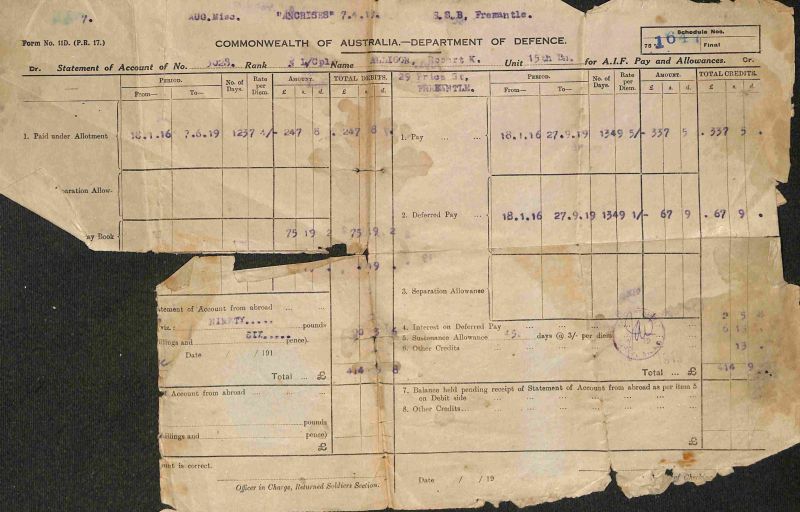 7.
AUG.Misc. "ANCHISES" 7.4.19. S.S.B, Fremantle.
Form No. 11D. (P.R. 17.)
COMMONWEALTH OF AUSTRALIA.—DEPARTMENT OF DEFENCE.
Schedule Nos.
75 1647 Final
Dr. Statement of Account of No. 3023. Rank L/Cpl Name Robert K. Unit 15th Bn. for A.I.F. Pay and Allowances. Cr.
29 Price St,
FREMANTLE.
PERIOD. No. of Days. Rate per Diem. AMOUNT. TOTAL DEBITS. PERIOD. No. of Days. Rate per Diem. AMOUNT. TOTAL CREDITS.
From— To— £ s. d. £ s. d. From— To— £ s. d. £ s. d.
1. Paid under Allotment 18.1.16 7.6.19 1237 4/- 247 8 . 247 8
1. Pay ... ... 18.1.16 27.9.19 1349 5/- 337 5 . 337 5 .
paration Allow-
2. Deferred Pay ... 18.1.16 27.9.19 1349 1/- 67 9 . 67 9 .
ay Book 75 19 2 75 19 2
3. Separation Allowance
tatement of Account from abroad ... ...
viz.: NINETY..... pounds
4. Interest on Deferred Pay ... ... ... ...
illings and SIX..... pence)
5. Sustenance Allowance 45. days @ 3/- per diem
6. Other Credits ... ... ... ... 13 .
Date / 191
Total ... £ 414 9 8
Total ... £ 414 9
of Account from abroad ... ...
7. Balance held pending receipt of Statement of Account from abroad as per item 5
on Debit side ... ... ... ... ...
8. Other Credits... ... ... ... ... ...
pounds
illings and pence)
£
£
unt is correct.
Officer in Charge, Returned Soldiers Section.
Date / / 19